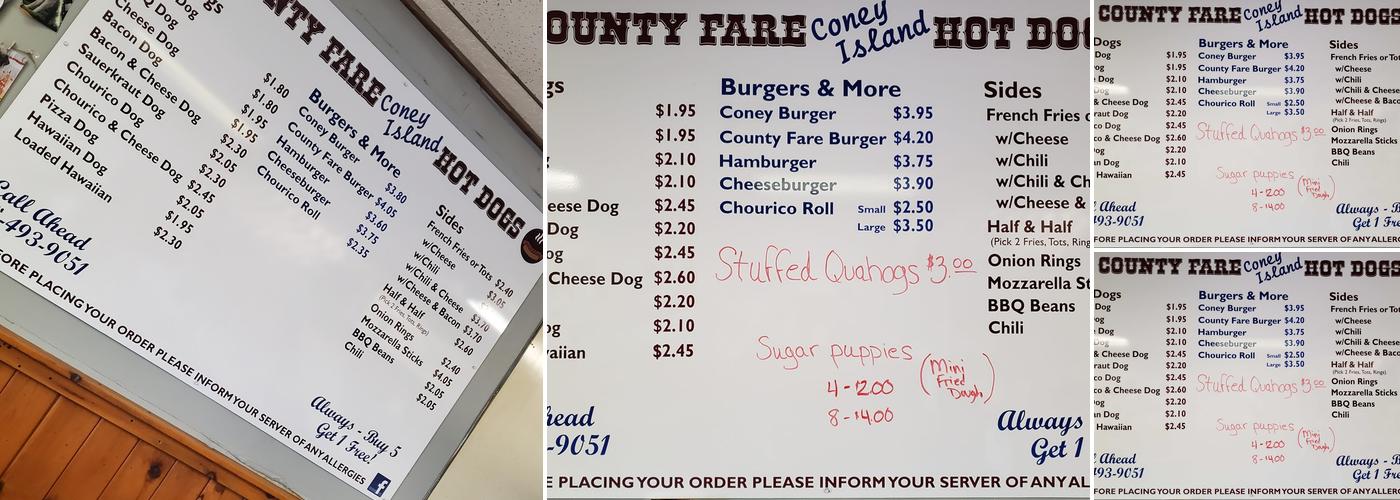 gs
Q Dog
Cheese Dog
Bacon Dog
Bacon & Cheese Dog
Sauerkraut Dog
Chourico Dog
Chourico & Cheese Dog
Pizza Dog
Hawaiian Dog
Loaded Hawaiian
$1.80
$1.80
$1.95
$1.95
$2.30
$2.05
$2.30
$2.45
$2.05
$1.95
$2.30
NTY FARE Coney Island HOT DOGS
Burgers & More
Coney Burger $3.80
County Fare Burger $4.05
Hamburger $3.60
Cheeseburger $3.75
Chourico Roll $2.35
Sides
French Fries or Tots $2.40
w/Cheese $3.05
w/Chili
w/Chili & Cheese $3.70
w/Cheese & Bacon $3.70
Half & Half $2.60
(Pick 2 Fries, Tots, Rings)
Onion Rings $2.40
Mozzarella Sticks $4.05
BBQ Beans $2.05
Chili $2.05
Call Ahead
-493-9051
Always - Buy 5
Get 1 Free!
FORE PLACING YOUR ORDER PLEASE INFORM YOUR SERVER OF ANY ALLERGIES
f
OUNTY FARE Coney Island HOT DO
gs
$1.95
$1.95
$2.10
$2.10
eese Dog $2.45
Dog $2.20
og $2.45
Cheese Dog $2.60
$2.20
og $2.10
aiian $2.45
Burgers & More
Coney Burger $3.95
County Fare Burger $4.20
Hamburger $3.75
Cheeseburger $3.90
Chourico Roll Small $2.50
Large $3.50
Stuffed Quahogs $3.00
Sugar puppies (Mini Fried Dough)
4-$2.00
8-$4.00
Sides
French Fries o
w/Cheese
w/Chili
w/Chili & Ch
w/Cheese &
Half & Half
(Pick 2 Fries, Tots, Ring
Onion Rings
Mozzarella St
BBQ Beans
Chili
head
-9051
Always
Get 1
E PLACING YOUR ORDER PLEASE INFORM YOUR SERVER OF ANY AL
COUNTY FARE Coney Island HOT DOGS
Dogs
Dog $1.95
og $1.95
Dog $2.10
Dog $2.10
& Cheese Dog $2.45
raut Dog $2.20
co Dog $2.45
o & Cheese Dog $2.60
og $2.20
an Dog $2.10
Hawaiian $2.45
Burgers & More
Coney Burger $3.95
County Fare Burger $4.20
Hamburger $3.75
Cheeseburger $3.90
Chourico Roll Small $2.50
Large $3.50
Stuffed Quahogs $3.00
Sugar puppies (Mini Fried Dough)
4-2.00
8-$4.00
Sides
French Fries or Tot
w/Cheese
w/Chili
w/Chili & Cheese
w/Cheese & Baco
Half & Half
(Pick 2 Fries, Tots, Rings)
Onion Rings
Mozzarella Sticks
BBQ Beans
Chili
Ahead
493-9051
Always - B
Get 1 Fre
FORE PLACING YOUR ORDER PLEASE INFORM YOUR SERVER OF ANY ALLERG
COUNTY FARE Coney Island HOT DOGS
Dogs
Dog $1.95
og $1.95
Dog $2.10
Dog $2.10
& Cheese Dog $2.45
raut Dog $2.20
co Dog $2.45
co & Cheese Dog $2.60
og $2.20
an Dog $2.10
Hawaiian $2.45
Burgers & More
Coney Burger $3.95
County Fare Burger $4.20
Hamburger $3.75
Cheeseburger $3.90
Chourico Roll Small $2.50
Large $3.50
Stuffed Quahogs $3.00
Sugar puppies (Mini Fried Dough)
4-2.00
8-$4.00
Sides
French Fries or Tot
w/Cheese
w/Chili
w/Chili & Cheese
w/Cheese & Baco
Half & Half
(Pick 2 Fries, Tots, Rings)
Onion Rings
Mozzarella Sticks
BBQ Beans
Chili
Ahead
493-9051
Always - B
Get 1 Fre
FORE PLACING YOUR ORDER PLEASE INFORM YOUR SERVER OF ANY ALLERG